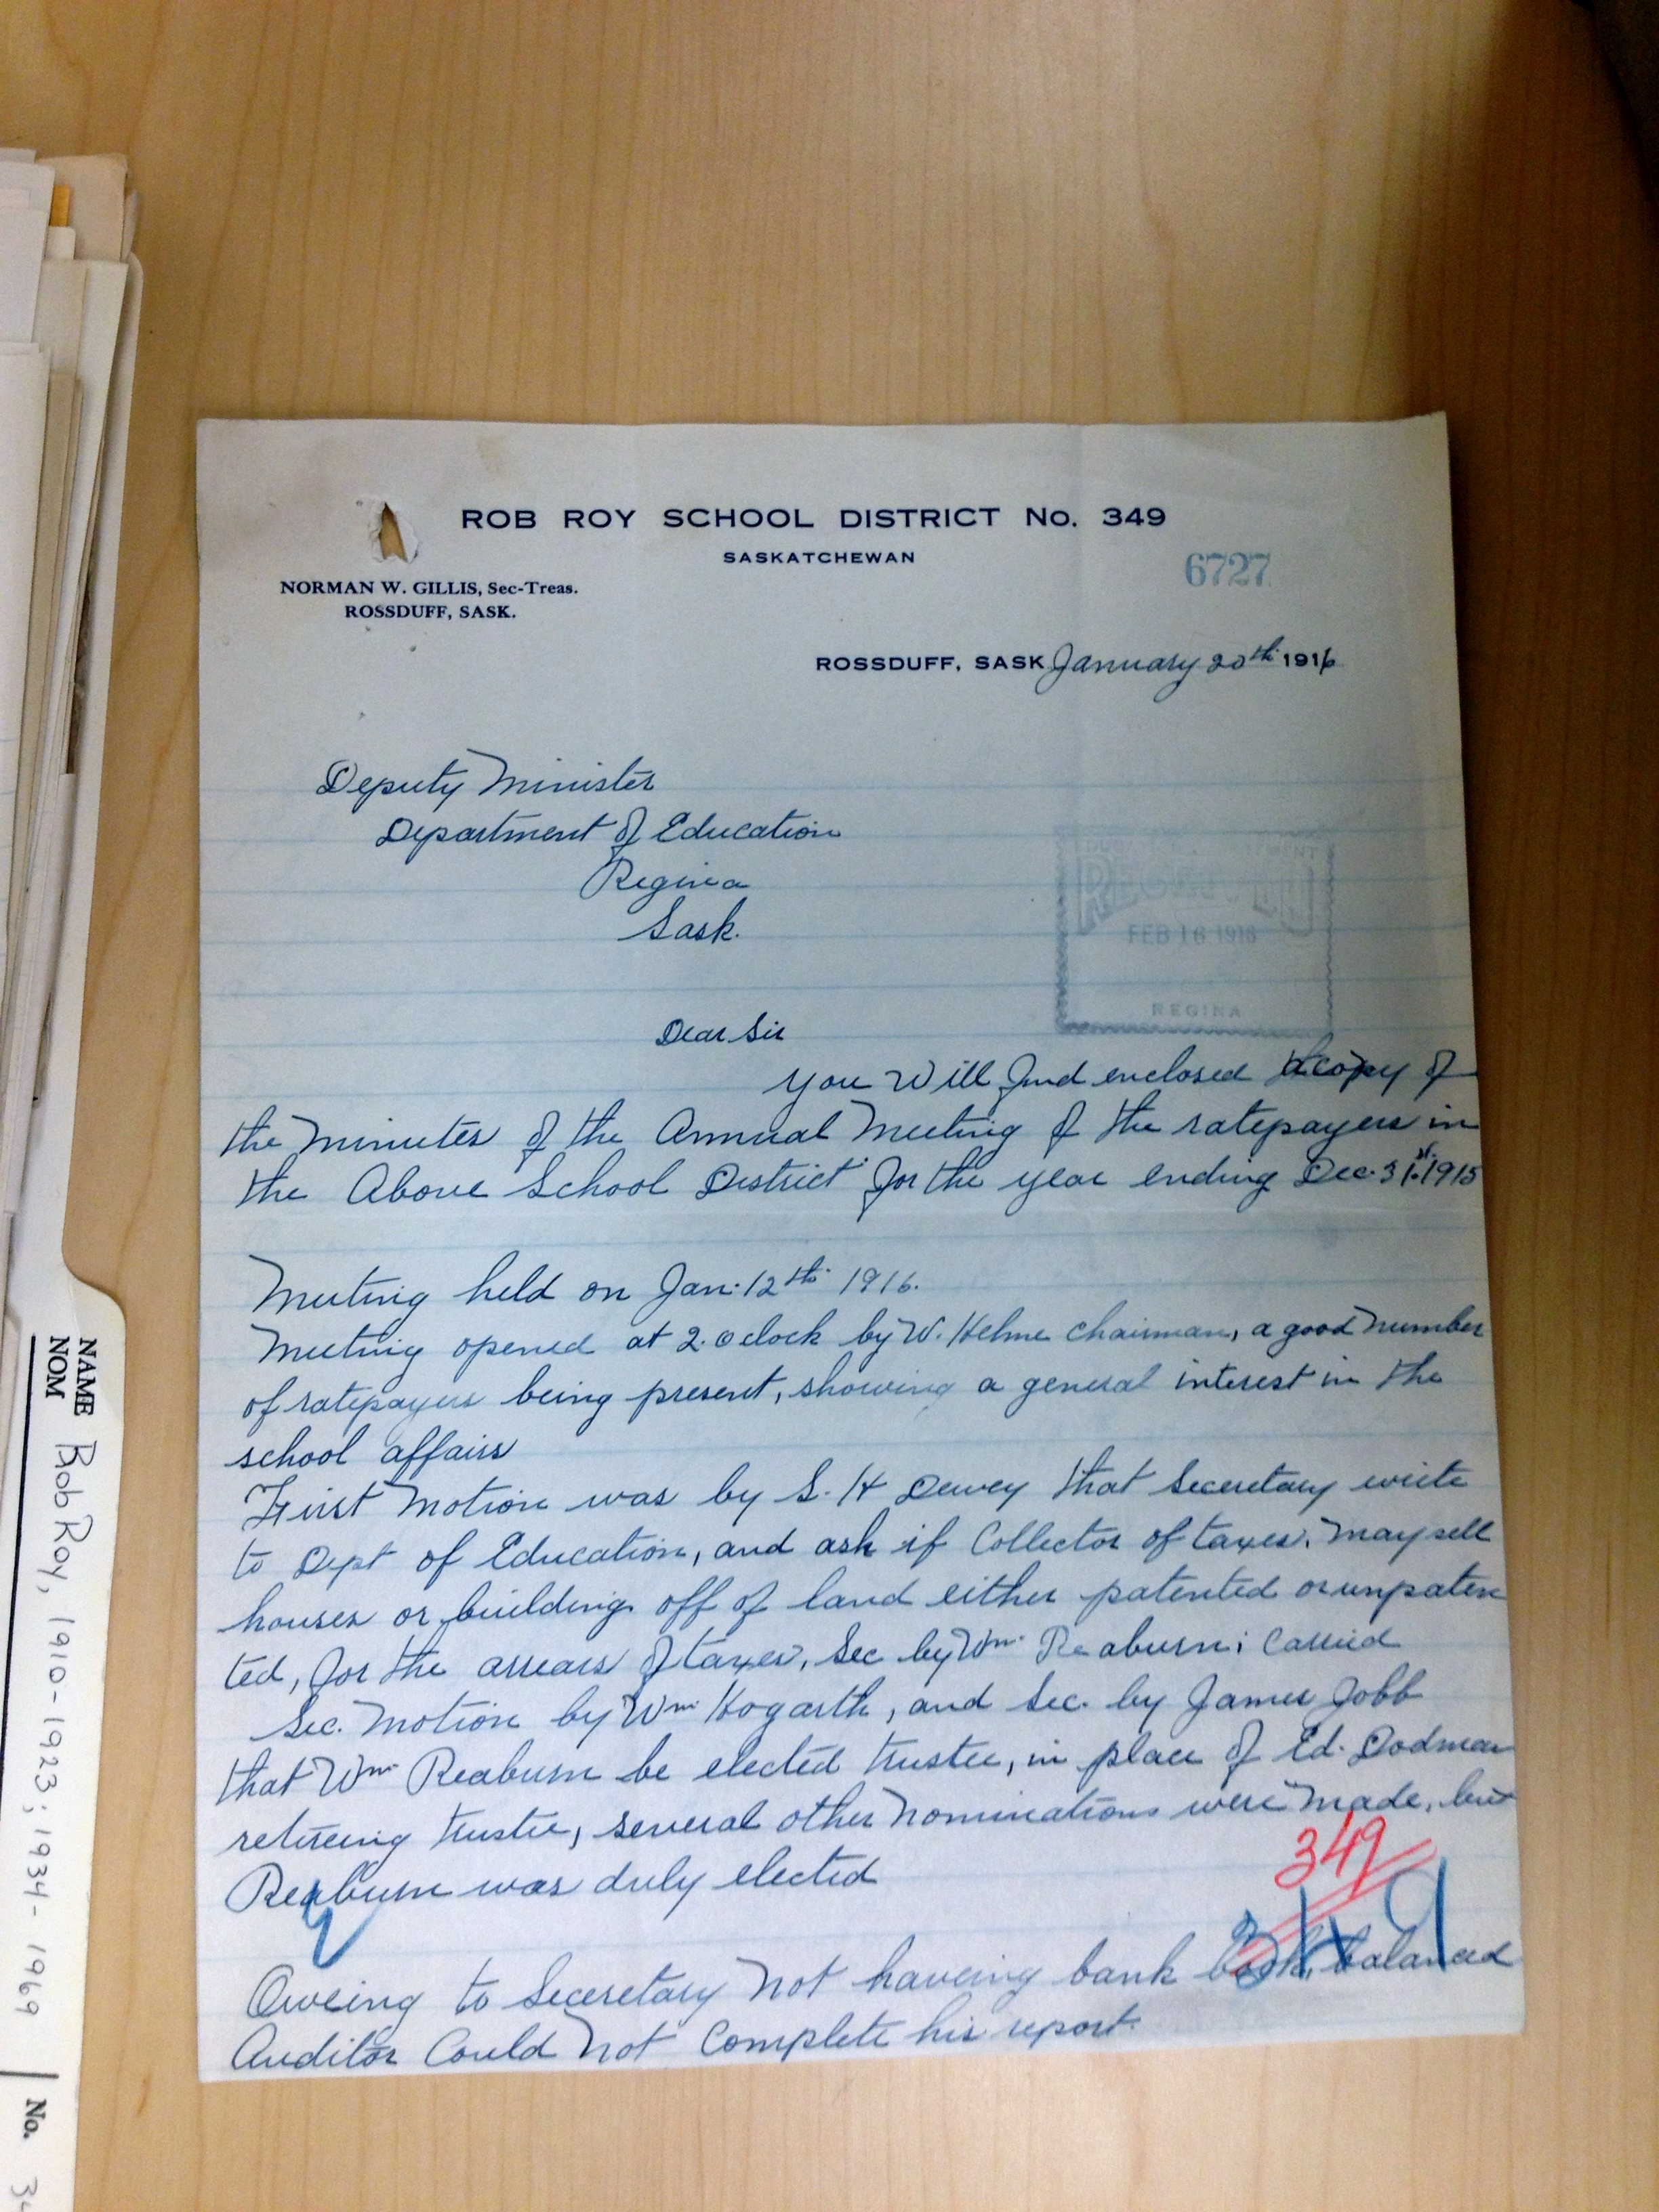 ROB ROY SCHOOL DISTRICT No. 349
SASKATCHEWAN
6727
NORMAN W. GILLIS, Sec-Treas.
ROSSDUFF, SASK.
ROSSDUFF, SASK January 20th 1916
Deputy Minister
Department of Education
Regina
Sask.
FEB 16 1916
REGINA
Dear Sir
you Will find enclosed a copy of
the Minutes of the Annual Meeting of the ratepayers in
the Above School District for the year ending Dec. 31st. 1915
Meeting held on Jan. 12th 1916.
Meeting opened at 2. o clock by W. Helme Chairman, a good number
of ratepayers being present, showing a general interest in the
school affairs
First Motion was by S. H Dewey that Seceretary write
to Dept of Education, and ask if Collector of taxes, may sell
houses or buildings off of land either patented or unpaten
ted, for the arrears of taxes, Sec by Wm Reaburn; Carried
Sec. Motion by Wm Hogarth, and Sec. by James Jobb
that Wm Reaburn be elected trustee, in place of Ed. Dodman
retireing trustee, several other Nominations were Made, but
Reaburn was duly elected
349
349
Oweing to Seceretary Not haveing bank book balanced
Auditor Could Not Complete his report.
NAME
NOM
Rob Roy, 1910-1923; 1934-1969
No.